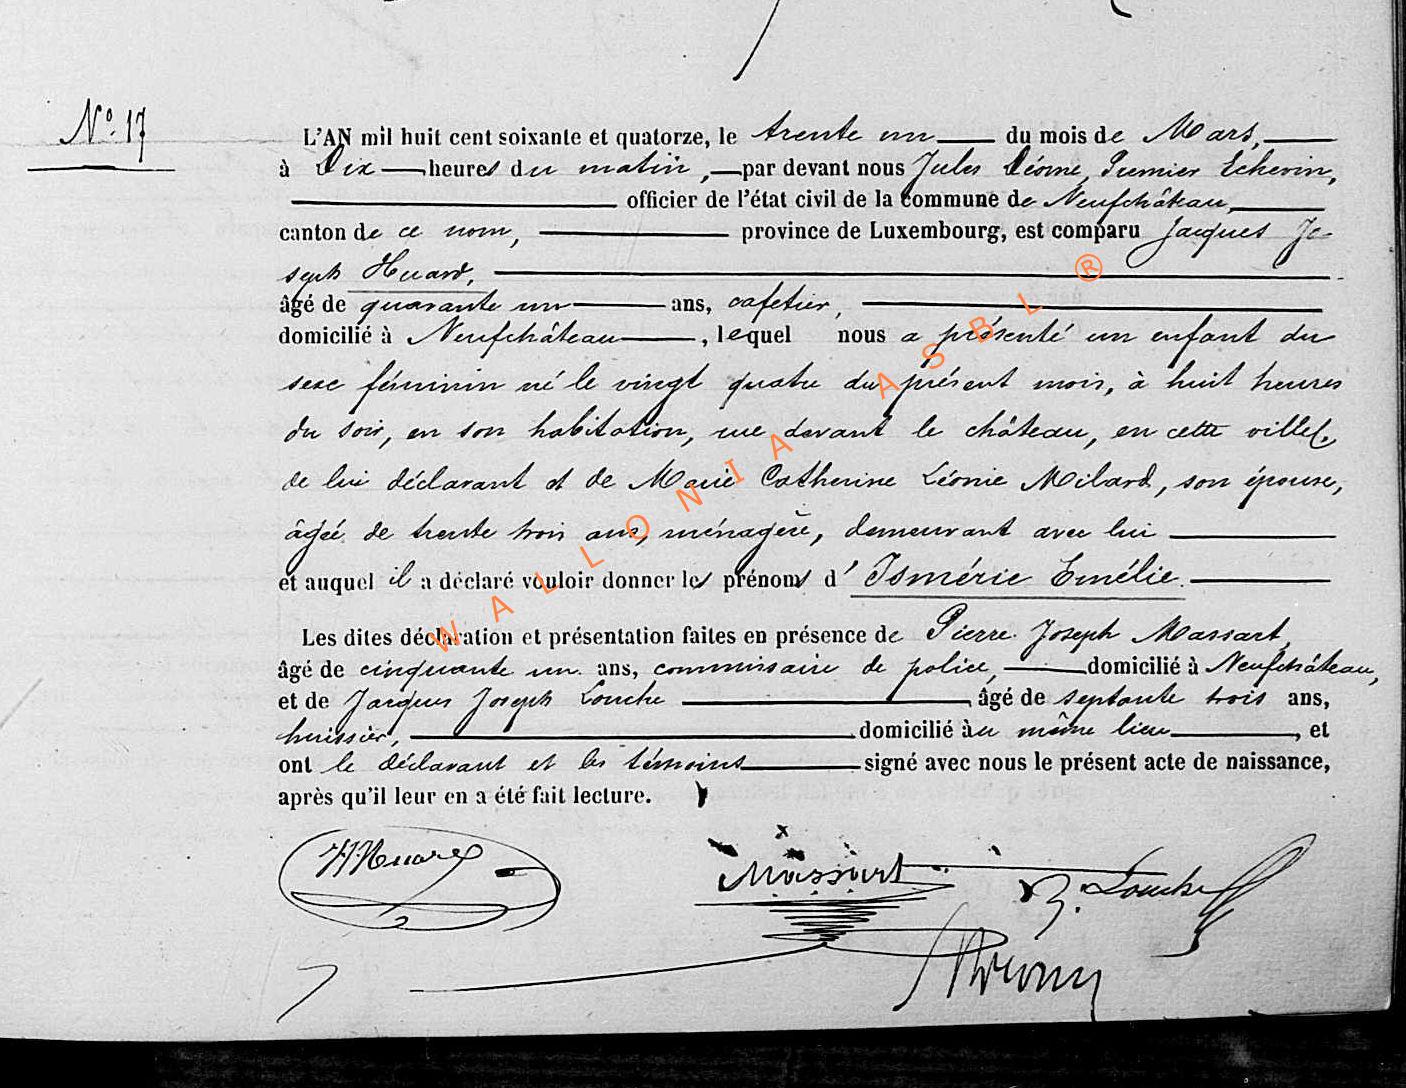 N° 17
L'AN mil huit cent soixante et quatorze, le trente un du mois de Mars,
à Dix heures du matin, par devant nous Jules Léonie, Premier Echevin,
officier de l'état civil de la commune de Neufchâteau,
canton de ce nom, province de Luxembourg, est comparu Jacques Jo-
seph Huard,
âgé de quarante un ans, cafetier,
domicilié à Neufchâteau, lequel nous a présenté un enfant du
sexe féminin né le vingt quatre du présent mois, à huit heures
du soir, en son habitation, rue devant le château, en cette ville,
de lui déclarant et de Marie Catherine Léonie Milard, son épouse,
âgée de trente trois ans, ménagère, demeurant avec lui
et auquel il a déclaré vouloir donner les prénoms d'Ismérie Emélie.
Les dites déclaration et présentation faites en présence de Pierre Joseph Massart,
âgé de cinquante un ans, commissaire de police, domicilié à Neufchâteau,
et de Jacques Joseph Louche, âgé de septante trois ans,
huissier, domicilié au même lieu, et
ont le déclarant et les témoins signé avec nous le présent acte de naissance,
après qu'il leur en a été fait lecture.
JJHuard Massart J. Louche
WALLONIA ASBL ®